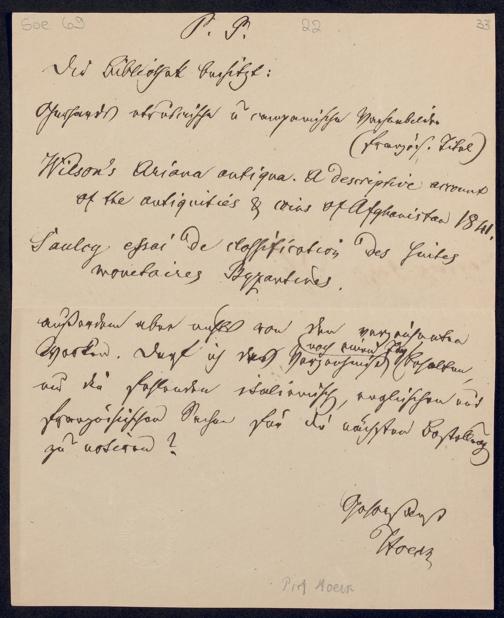 Soe 69 22 33
P. P.
Die Bibliothek besitzt:
Gerhard's etruskische u campanische Vasenbilder
(französ. Titel)
Wilson's Ariana antiqua. A descriptive account
of the antiquities & coins of Afghanistan 1841.
Saulcy essai de classification des suites
monetaires Byzantines.
außerdem aber nichts von den verzeichneten
noch einen Tag
Werken. Darf ich das Verzeichniß behalten,
um die fehlenden italienisch, englischen und
französischen Sachen für die nächsten Bestellung
zu notiren?
Gehorsamst
Hoeck
Prof Hoeck